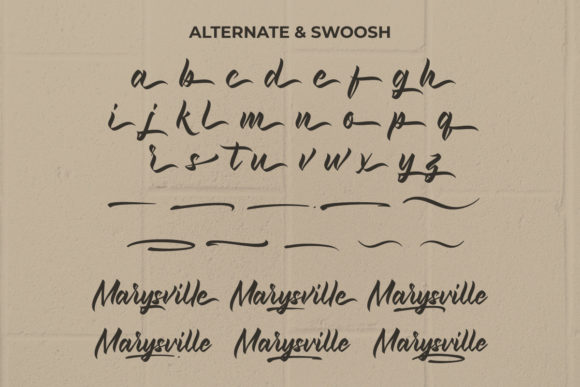 ALTERNATE & SWOOSH
a b c d e f g h
i j k l m n o p q
r s t u v w x y z
Marysville Marysville Marysville
Marysville Marysville Marysville